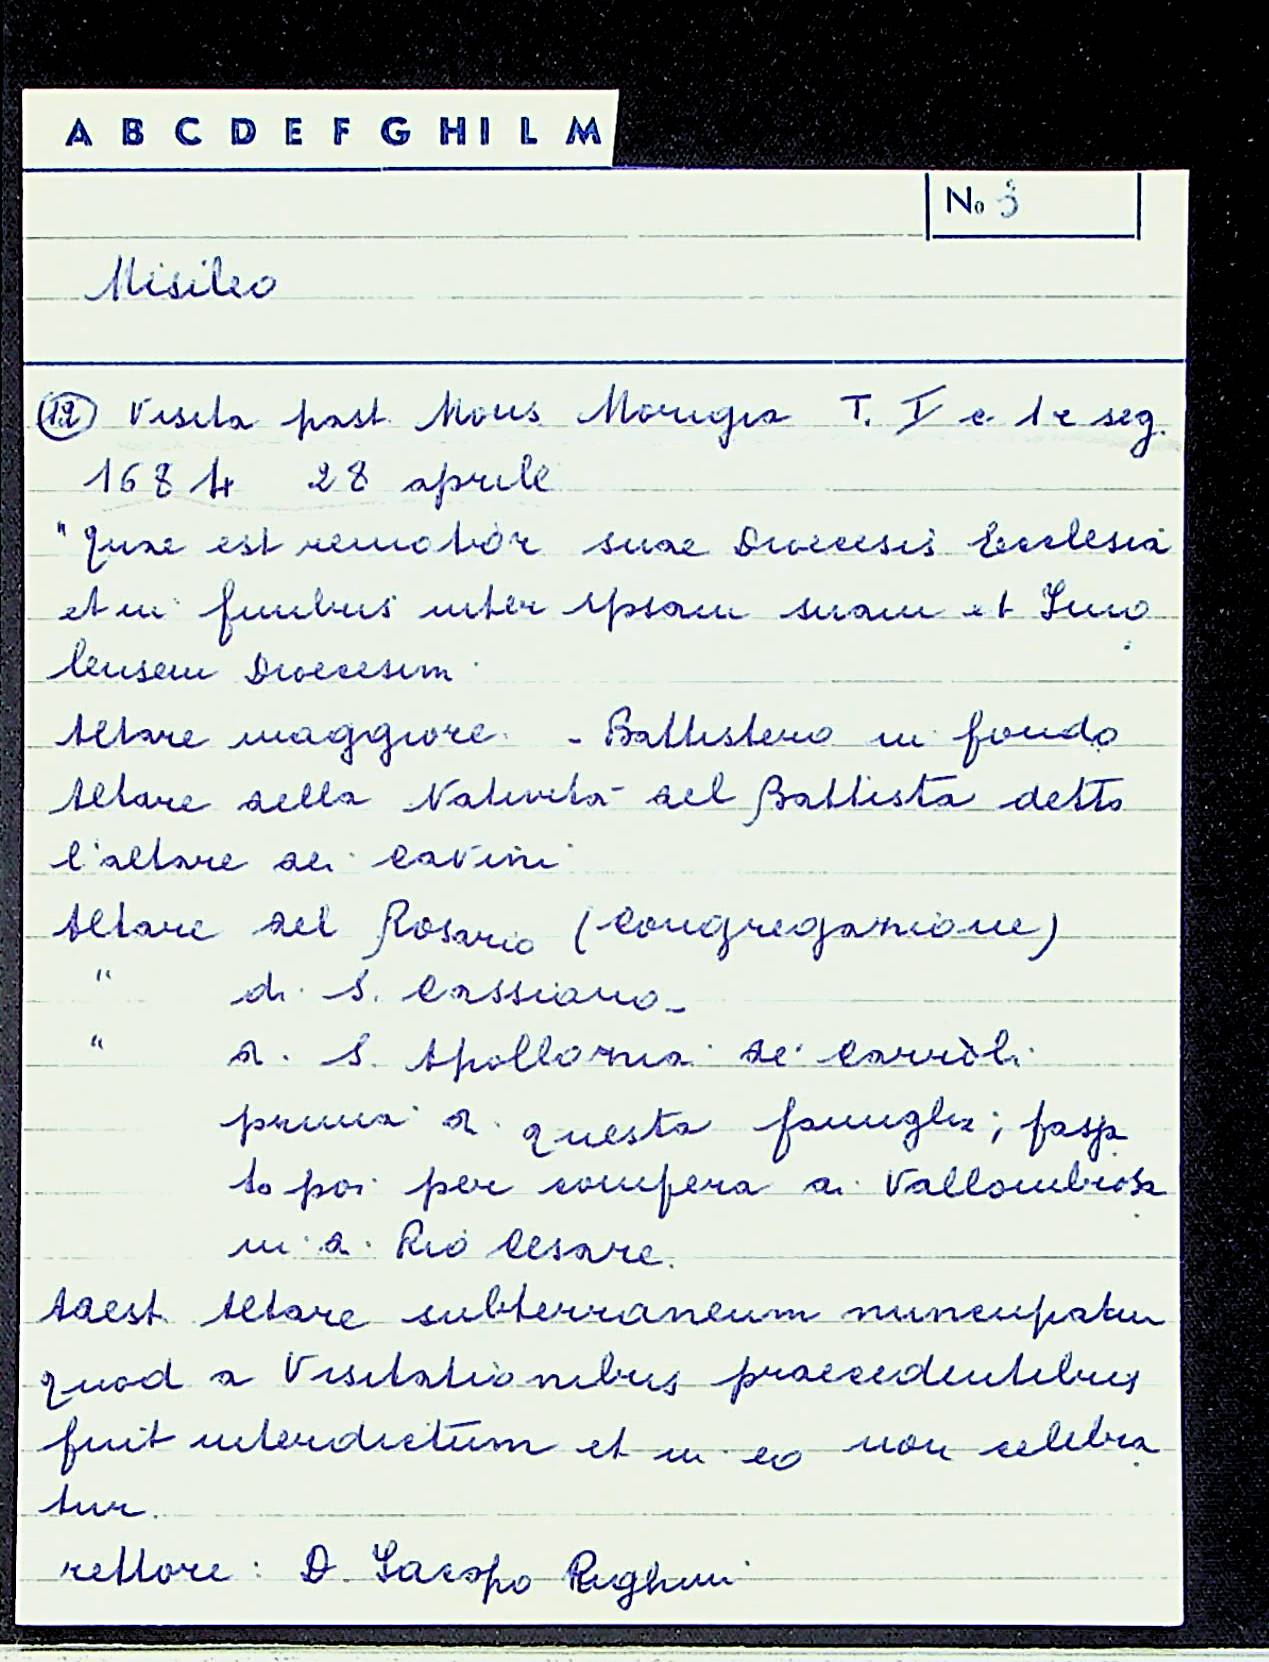 A B C D E F G HI L M
No 3
Misileo
12 Visita past. Mons Morigia T. I c 1 e seg.
1684 28 aprile
"Quae est remotior suae Dioecesis Ecclesia
et in finibus inter ipsam suam et Imo
lensem Dioecesim.
Altare maggiore. - Battistero in fondo
Altare della Natività del Battista detto
l'altare dei Cavini
Altare del Rosario (Congregazione)
" di S. Cassiano_
" d. S. Apollonia de' Carroli
prima d. questa famiglia; passa
to poi per compera ai Vallombrosa
ni d. Rio Cesare.
Adest Altare subterraneum nuncupatum
quod a Visitationibus praecedentibus
fuit interdictum et in eo non celebra
tur.
rettore: D. Jacopo Righini